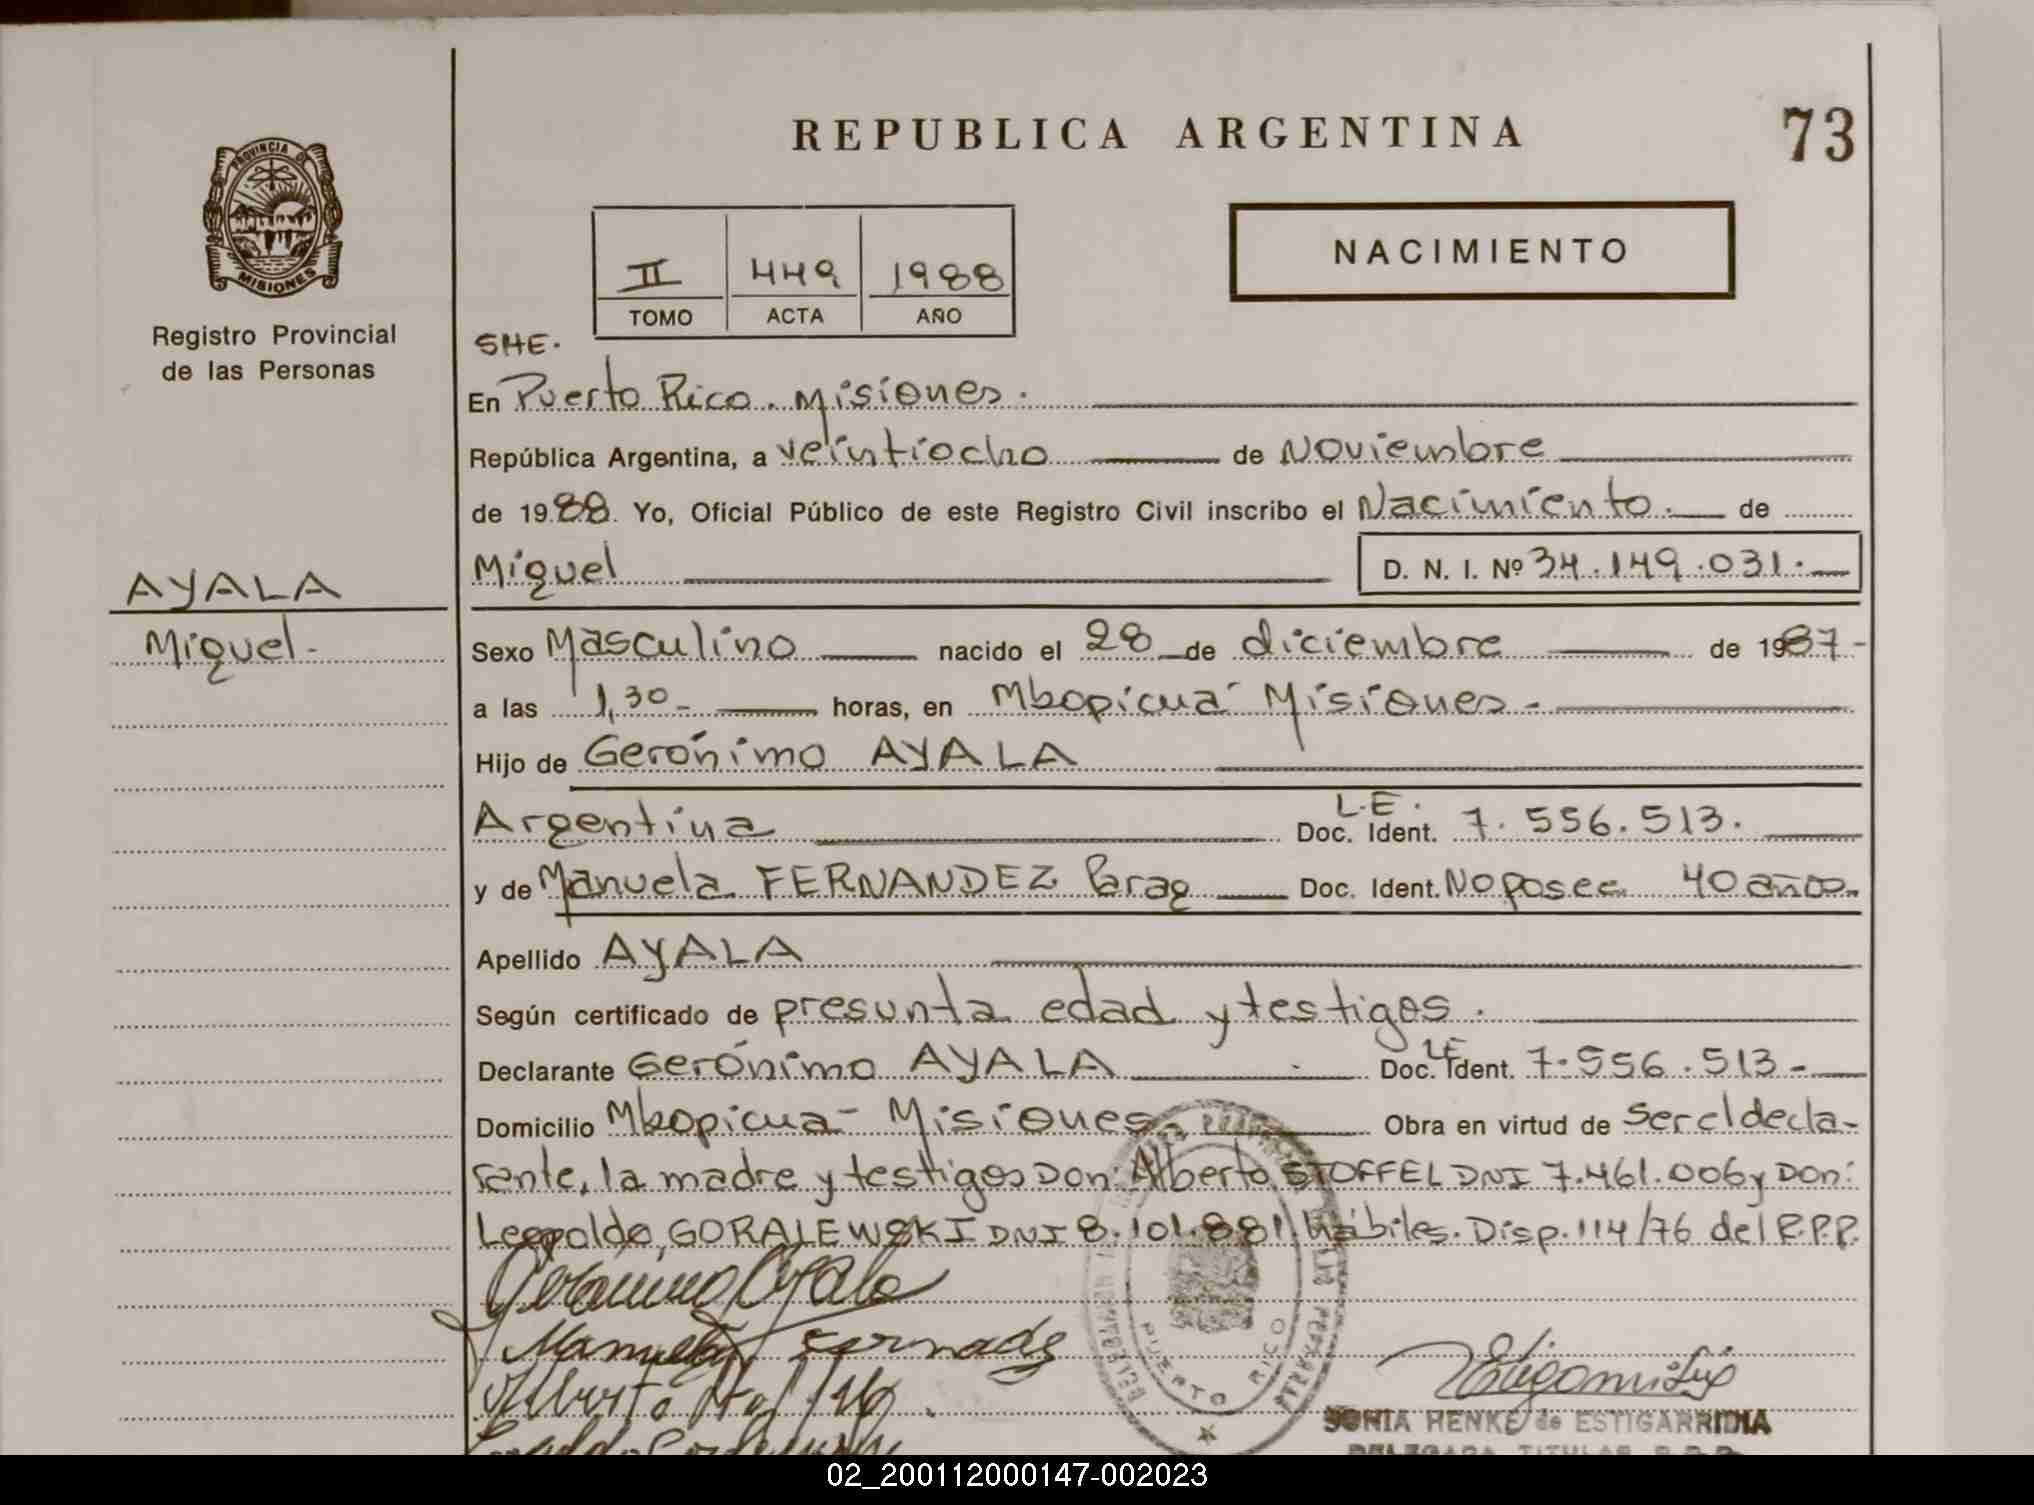 REPUBLICA ARGENTINA
73
PROVINCIA DE
MISIONES
Registro Provincial
de las Personas
II 449 1988
TOMO ACTA AÑO
NACIMIENTO
SHE.
En Puerto Rico. Misiones.
República Argentina, a veintiocho de Noviembre
de 1988. Yo, Oficial Público de este Registro Civil inscribo el Nacimiento. de
Miguel D. N. I. Nº 34.149.031.
AYALA
Miguel-
Sexo Masculino nacido el 28 de diciembre de 1987-
a las 1,30- horas, en Mbopicuá Misiones-
Hijo de Gerónimo AYALA
Argentina L.E. Doc. Ident. 7.556.513.
y de Manuela FERNANDEZ Parag Doc. Ident. No posee 40 años.
Apellido AYALA
Según certificado de presunta edad y testigos.
Declarante Gerónimo AYALA Doc. LE Ident. 7.556.513-
Domicilio Mbopicua- Misiones Obra en virtud de ser el decla-
rante, la madre y testigos Don: Alberto STOFFEL DNI 7.461.006 y Don:
Leopoldo GORALEWSKI DNI 8.101.881. hábiles. Disp. 114/76 del R.P.P.
Gerónimo Ayala
Manuela Fernadez
Alberto
PUERTO RICO
SONIA HENKE de ESTIGARRIBIA
DELEGADA TITULAR R.P.P.
02_200112000147-002023